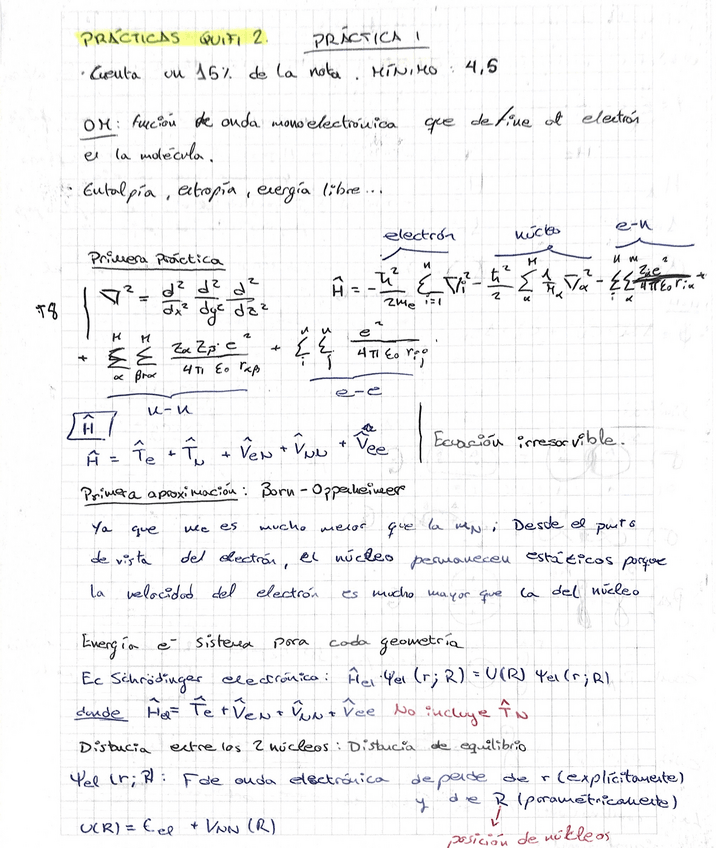 PRÁCTICAS QUIFI 2. PRÁCTICA 1
· Cuenta un 15% de la nota. MÍNIMO: 4,5
OM: función de onda monoelectrónica que define al electrón
en la molécula.
Entalpía, entropía, energía libre...
electrón núcleo e-n
Primera Práctica
T8
∇² = d²/dx² d²/dy² d²/dz²
Ĥ = - ħ²/2me Σ(i=1, n) ∇i² - ħ²/2 Σ(α, M) 1/Mα ∇α² - Σ(i, n) Σ(α, m) Zα e²/4πε₀ riα
+ Σ(α, M) Σ(β≠α, M) Zα Zβ · e²/4πε₀ rαβ + Σ(i, n) Σ(j, n) e²/4πε₀ rij
n-n e-e
Ĥ
Ĥ = T̂e + T̂N + V̂eN + V̂NN + V̂ee Ecuación irresorvible.
Primera aproximación: Born-Oppenheimer
Ya que me es mucho menor que la mN; Desde el punto
de vista del electrón, el núcleo permanecen estáticos porque
la velocidad del electrón es mucho mayor que la del núcleo
Energía e⁻ sistema para cada geometría
Ec Schrödinger electrónica: Ĥel · Ψel (r; R) = U(R) Ψel (r; R)
donde Ĥel = T̂e + V̂eN + V̂NN + V̂ee No incluye T̂N
Distancia entre los 2 núcleos: Distancia de equilibrio
Ψel (r; R): F de onda electrónica depende de r (explícitamente)
y de R (paramétricamente)
U(R) = Eel + VNN (R)
posición de núcleos